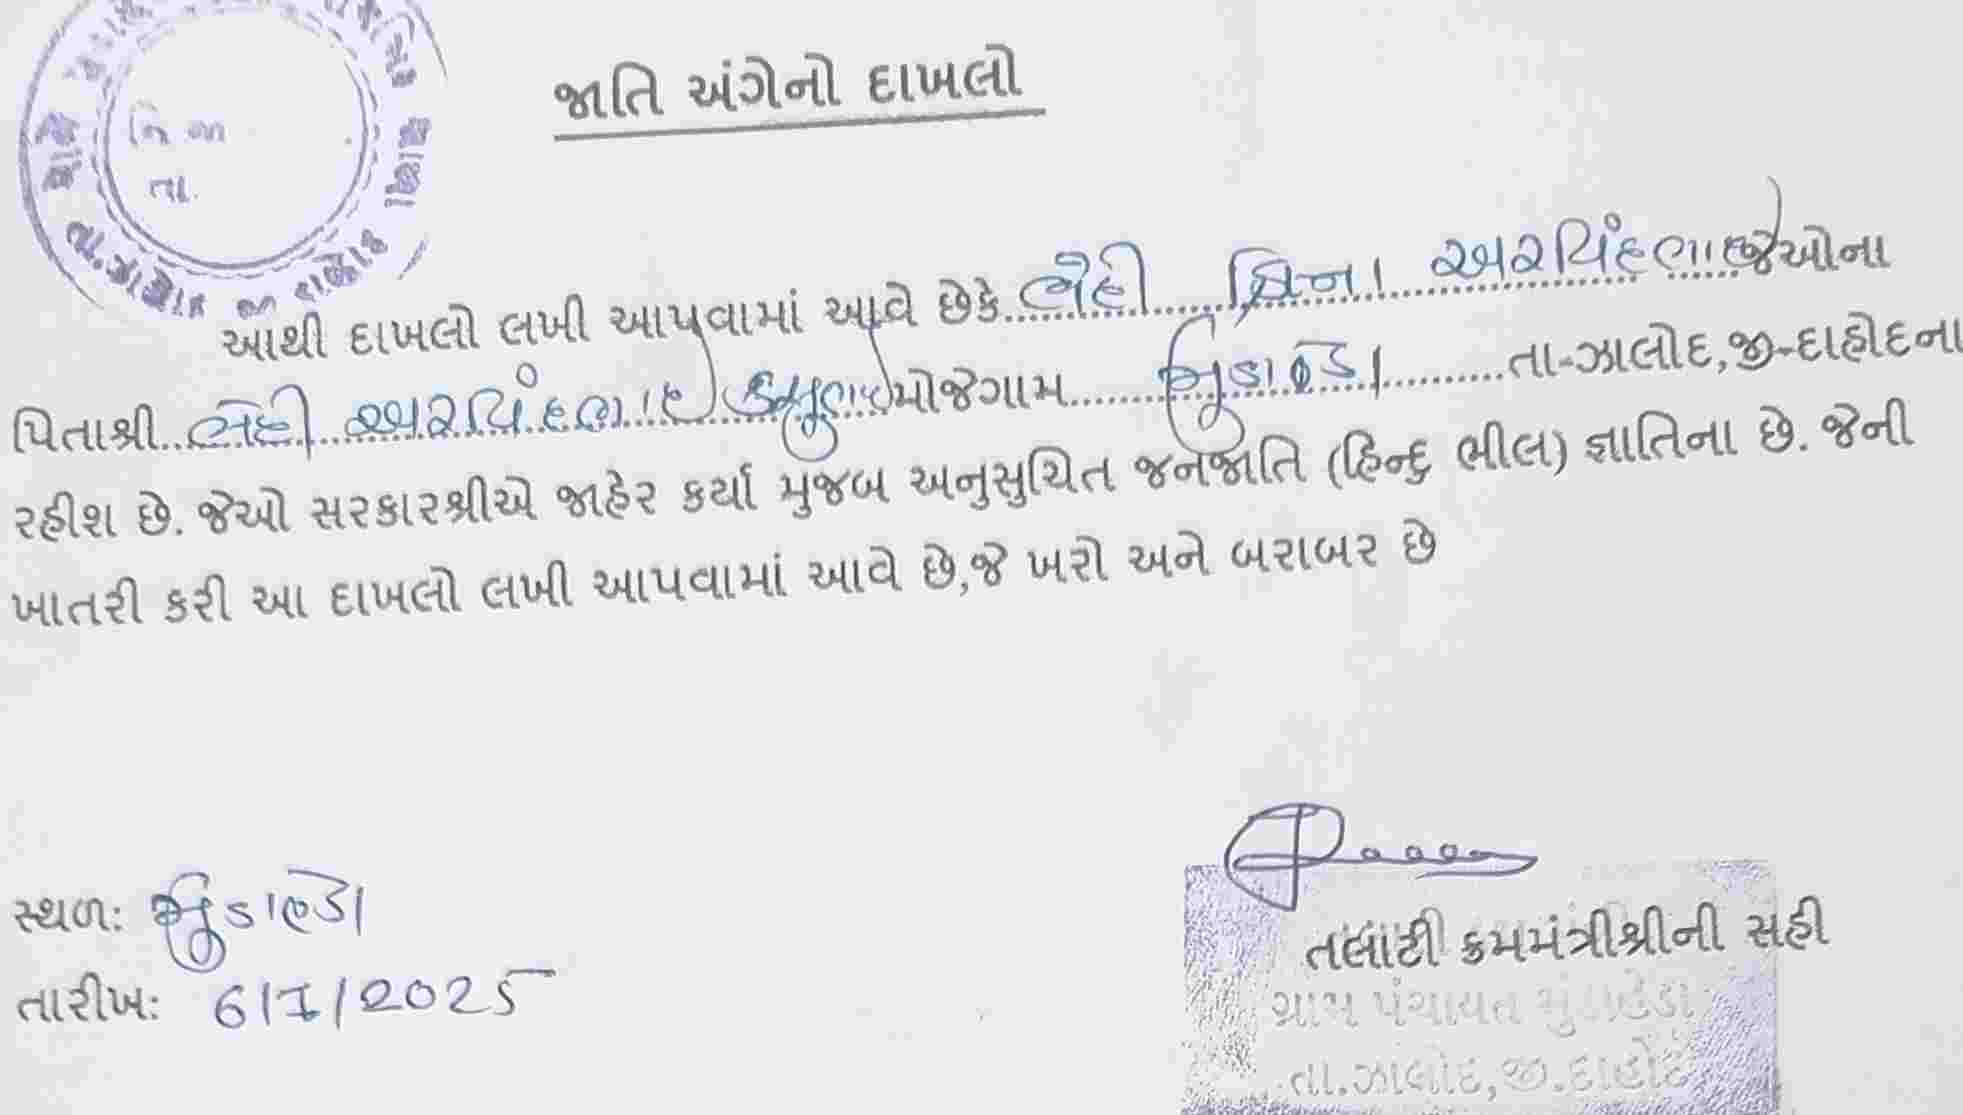 જાતિ અંગેનો દાખલો
આથી દાખલો લખી આપવામાં આવે છેકે અરવિંદભાઇ જેઓના
પિતાશ્રી અરવિંદભાઇ મોજેગામ મુંડાહેડા તા-ઝાલોદ,જી-દાહોદના
રહીશ છે. જેઓ સરકારશ્રીએ જાહેર કર્યા મુજબ અનુસુચિત જનજાતિ (હિન્દુ ભીલ) જ્ઞાતિના છે. જેની
ખાતરી કરી આ દાખલો લખી આપવામાં આવે છે,જે ખરો અને બરાબર છે
સ્થળ: મુંડાહેડા
તારીખ: 6/1/2025
તલાટી કમમંત્રીશ્રીની સહી
ગ્રામ પંચાયત મુંડાહેડા
તા.ઝાલોદ,જી.દાહોદ